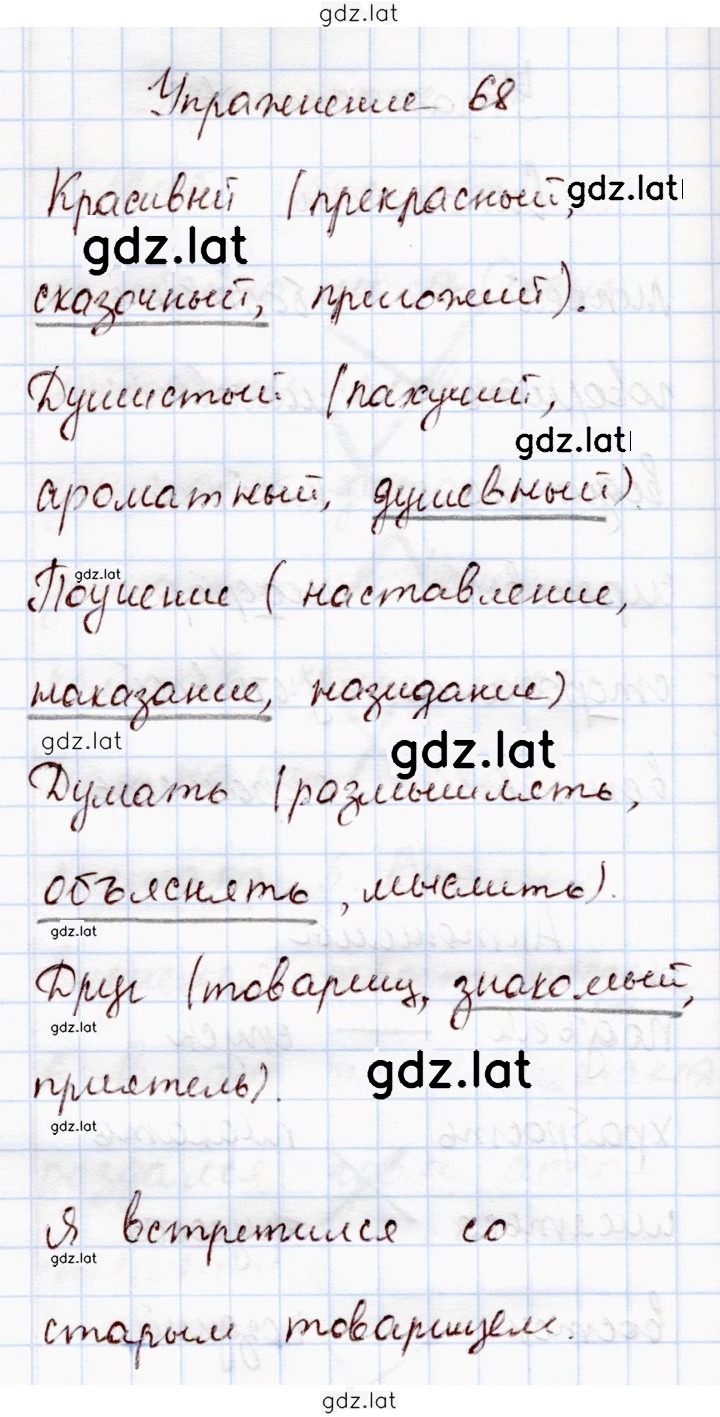 gdz.lat
Упражнение 68
Красивый (прекрасный,
gdz.lat
gdz.lat
сказочный, пригожий).
Душистый (пахучий,
gdz.lat
ароматный, душевный).
gdz.lat
Поучение (наставление,
наказание, назидание)
gdz.lat
gdz.lat
Думать (размышлять,
объяснять, мыслить).
gdz.lat
Друг (товарищ, знакомый,
gdz.lat
gdz.lat
приятель).
gdz.lat
Я встретился со
gdz.lat
старым товарищем.
gdz.lat